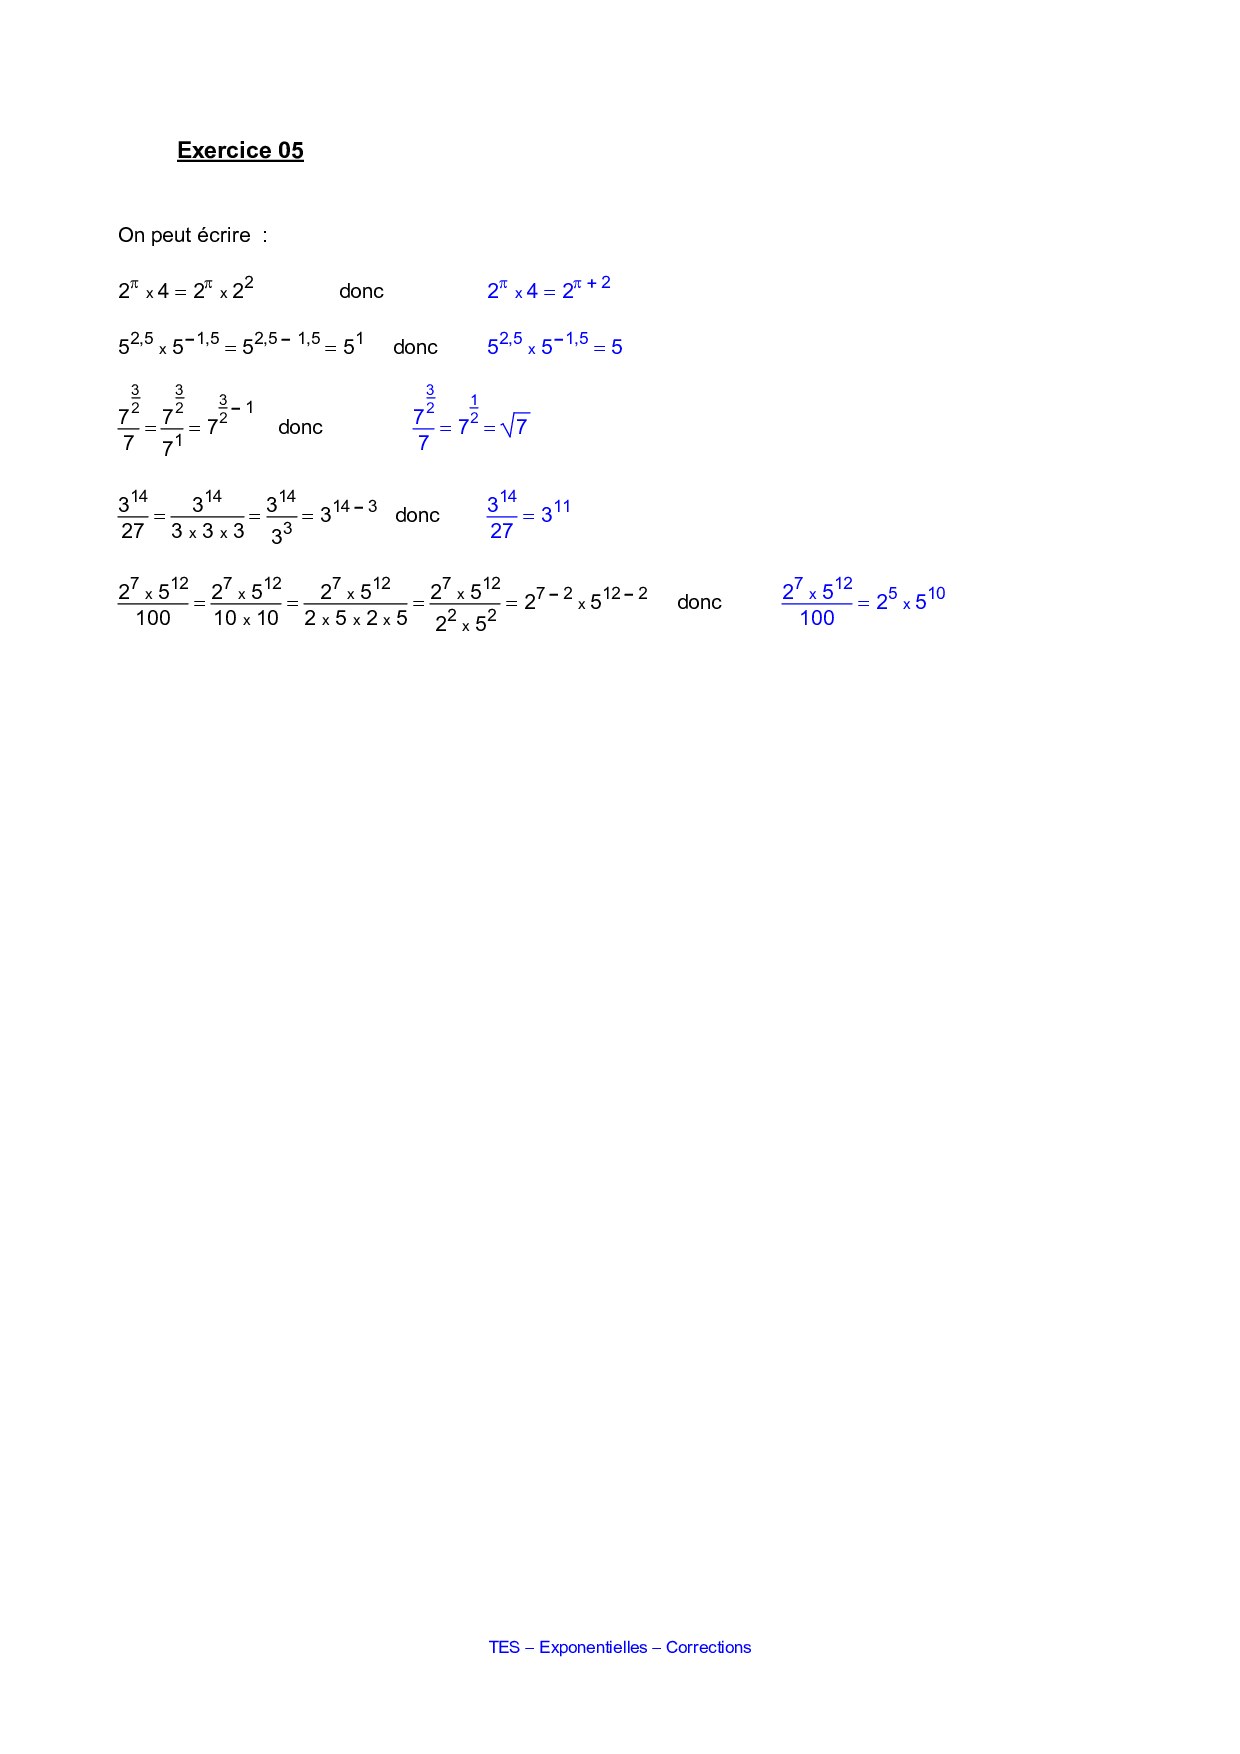 Exercice 05
On peut écrire :
2^π x 4 = 2^π x 2^2 donc 2^π x 4 = 2^(π + 2)
5^(2,5) x 5^(−1,5) = 5^(2,5 − 1,5) = 5^1 donc 5^(2,5) x 5^(−1,5) = 5
7^(3/2)/7 = 7^(3/2)/7^1 = 7^(3/2 − 1) donc 7^(3/2)/7 = 7^(1/2) = √7
3^14/27 = 3^14/(3 x 3 x 3) = 3^14/3^3 = 3^(14 − 3) donc 3^14/27 = 3^11
(2^7 x 5^12)/100 = (2^7 x 5^12)/(10 x 10) = (2^7 x 5^12)/(2 x 5 x 2 x 5) = (2^7 x 5^12)/(2^2 x 5^2) = 2^(7 − 2) x 5^(12 − 2) donc (2^7 x 5^12)/100 = 2^5 x 5^10
TES – Exponentielles – Corrections